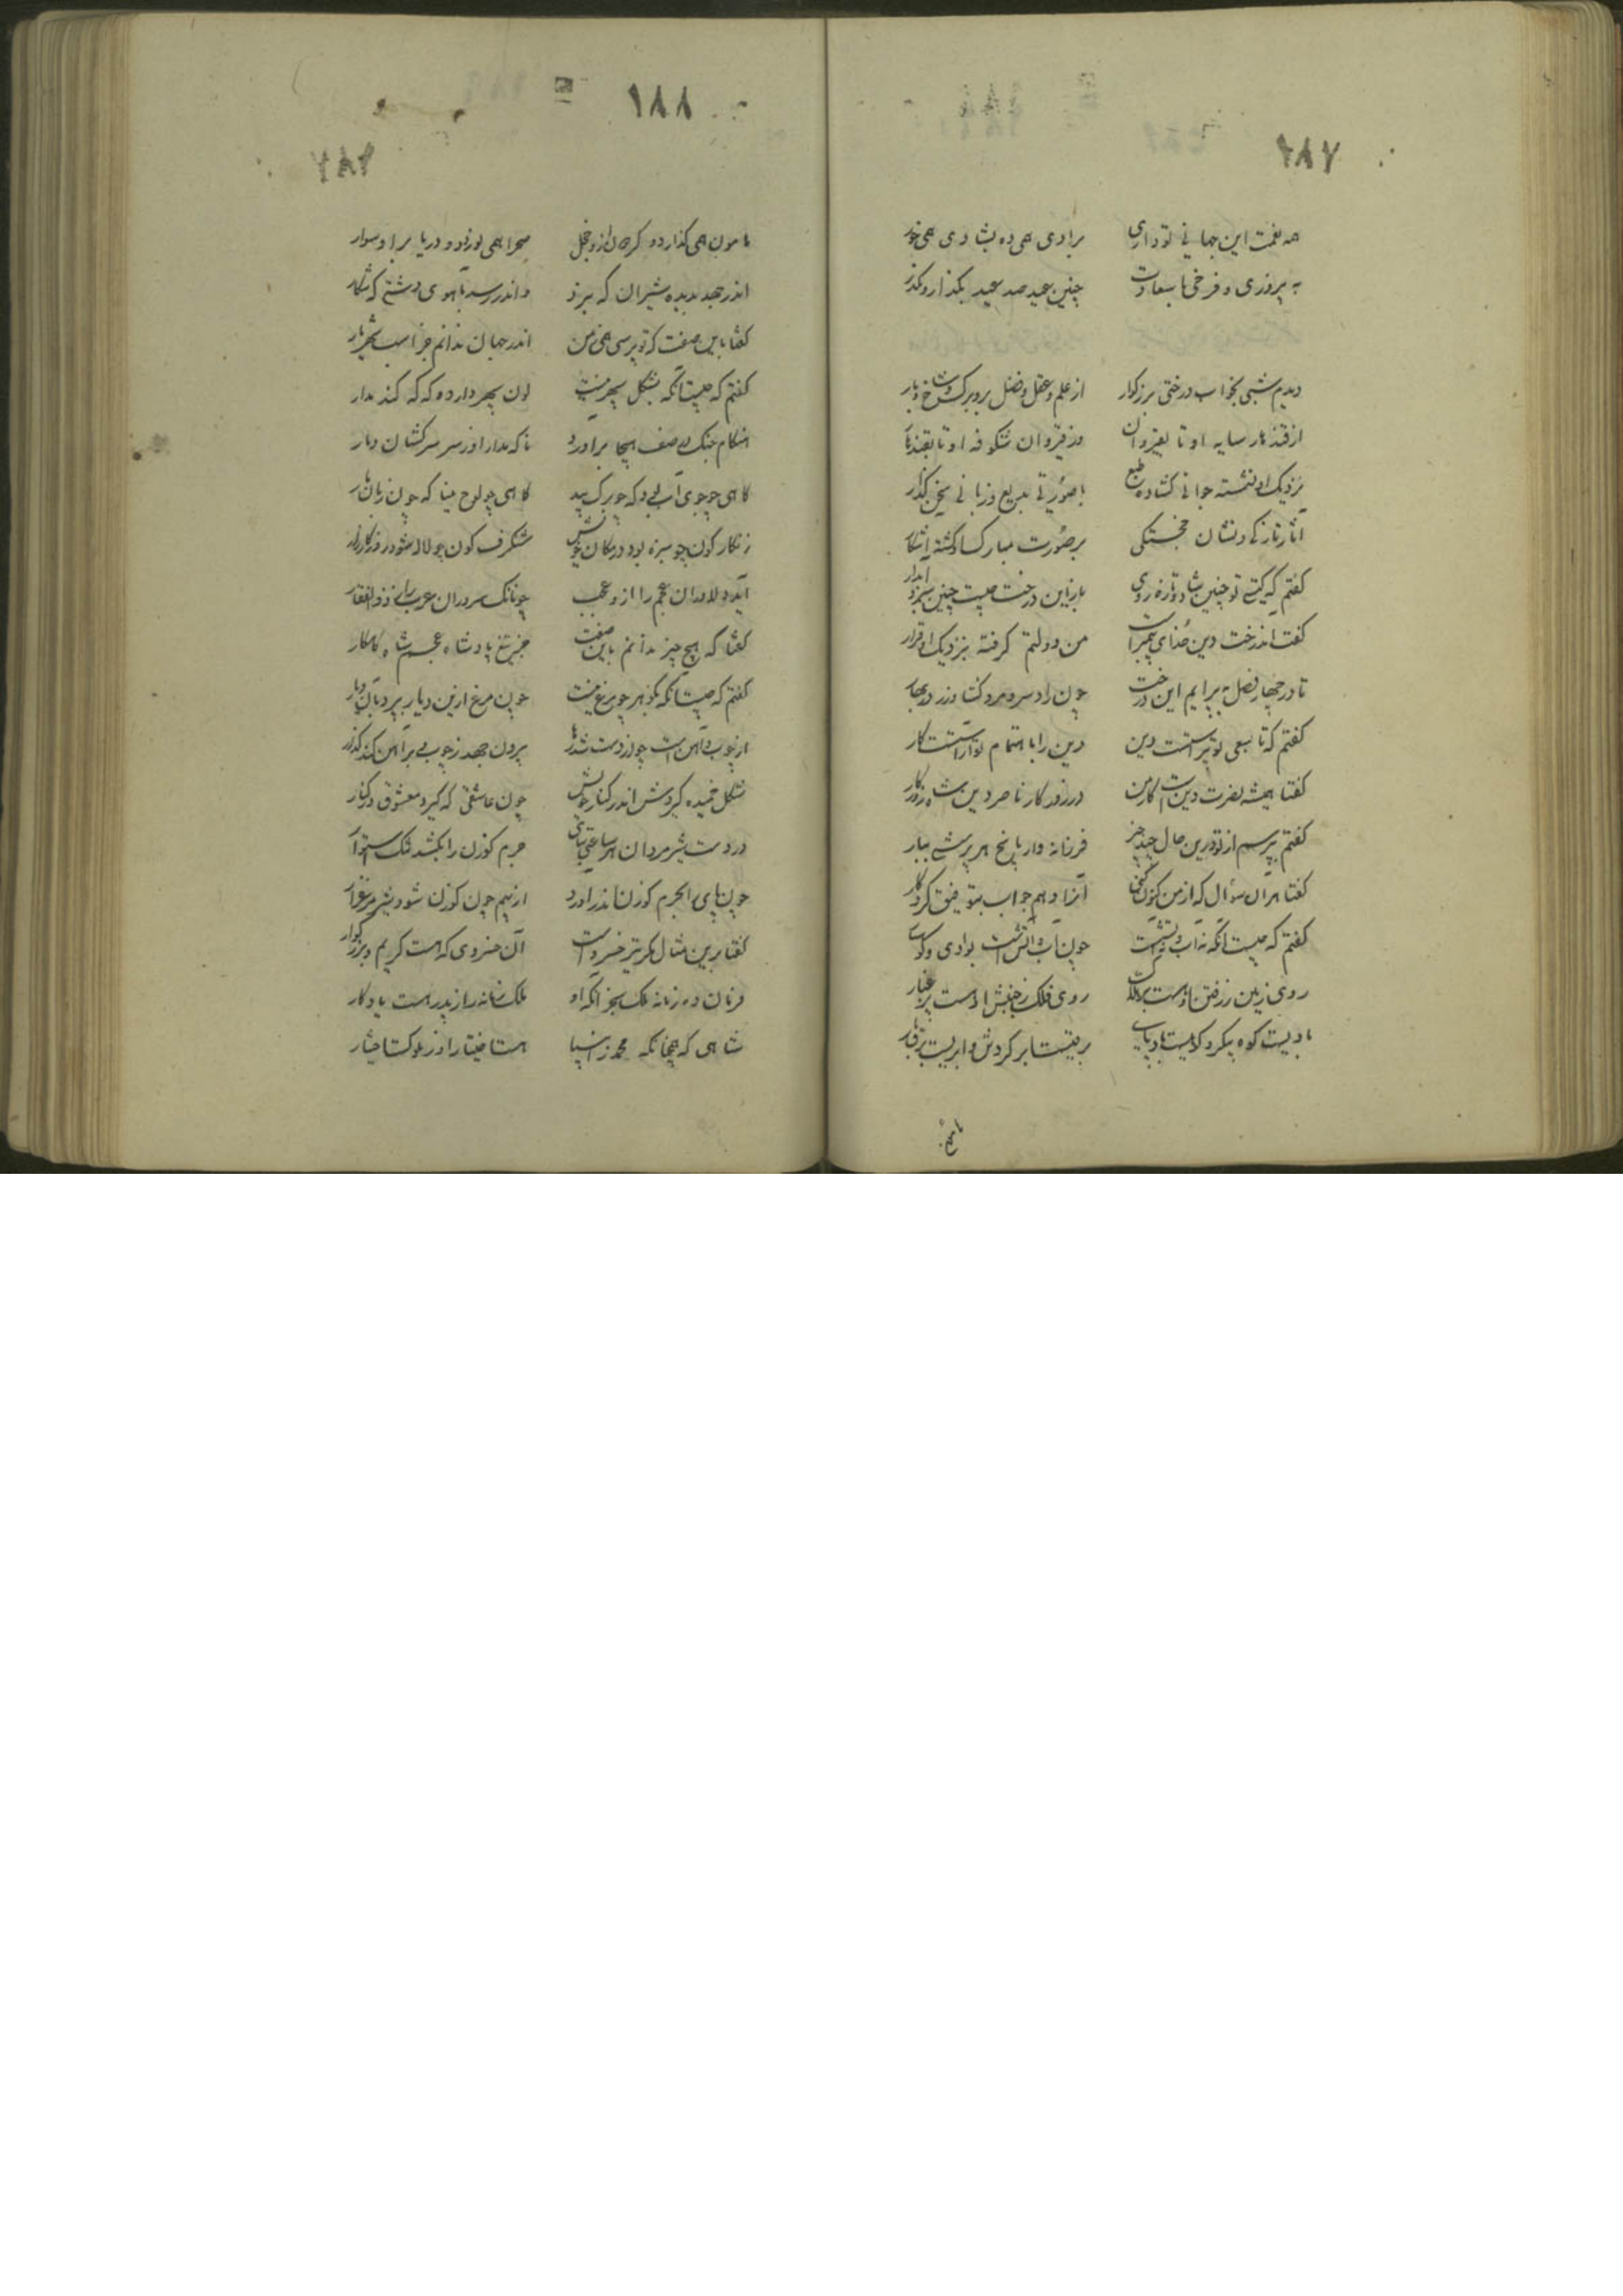 ۱۸۷
همه نعمت این جهانی تو داری برادی همی ده بشادی همی خور
به پیروزی و فرخی با سعادت چنین عید صد عید بگذار و بگذر
دیدم شبی بخواب درختی بزرگوار از علم و عقل و فضل برو برک و شاخ و بار
از قندهار سایه او تا بقیروان وز قیروان شکوفه او تا بقندهار
نزدیک او نشسته جوانی گشاده طبع با صورتی بدیع و زبانی سخن گذار
آثار تازگی و نشان خجستگی بر صورت مبارک
گفتم که کیستی تو چنین شاد و تازه روی باز این درخت چیست چنین سبز و آبدار
گفت درخت دین خدای پیمبر است من دولتم گرفته بنزدیک او قرار
تا در چهار فصل به پیرایم این درخت چون راد سرو مرد کشاورز در بهار
گفتم که تا بسعی تو دین دین را باهتمام تو کار
گفتا همیشه نصرت دین است کار من در روزگار ناصر دین شاه روزگار
گفتم بپرسم از تو درین حال چند چیز فرزانه وار پاسخ هر پرسشی بیار
گفتا هر آن سؤال که از من کنون کنی آنرا دهم جواب بتوفیق کردگار
گفتم که چیست آنکه نه آب و نه آتش است چون آب و آتش است بوادی و کوهسار
روی زمین ز رفتن او هست روی فلک ز جنبش او هست پر غبار
بادیست کوه پیکر و کوهیست بادپای
۱۸۸
هامون همی گذارد و کرحان ازو خجل صحرا همی نوردد و دریا برو سوار
اندر جهد بدیده شیران که نبرد و اندر رسد بآهوی دشتی که شکار
گفتا باین صفت که تو پرسی همی ز من اندر جهان ندانم جز اسب شهریار
گفتم که چیست آنکه بشکل سپهر نیست لون سپهر دارد و که که کند مدار
هنگام جنگ در صف هیجا برآورد ناگه مدار او ز سر سرکشان دمار
گاهی چو جوی آب و گه چو برگ بید گاهی چو لوح مینا گه چون زبان مار
زنگارگون چو سبزه بود در مکان خویش شنگرف گون چو لاله شود روز کارزار
آید دلاوران عجم را ازو عجب چونانک سروران عرب را ز ذوالفقار
گفتا که هیچ چیز ندانم باین صفت جز تیغ پادشاه عجم شاه کامکار
گفتم که چیست آنکه بگوهر چو مرغ نیست چون مرغ ازین دیار بپرد بآن دیار
از چوب و آهن است چو از دست شد رها بیرون جهد ز چوب و بر آهن کند گذر
شکل خمیده گیردش اندر کنار خویش چون عاشقی که گیرد معشوق در کنار
در دست شیر مردان هر ساعتی چرم گوزن را بکشد
چون پای بر چرم گوزن اندر آورد از بیم چون گوزن شود شیر مرغزار
گفتا برین مثال مگر تیر خسرو است آن خسروی که هست کریم و بزرگوار
فرمان ده زمانه ملک سنجر آنکه او ملک زمانه را ز پدر هست یادگار
شاهی که همچنانکه محمد ز انبیا